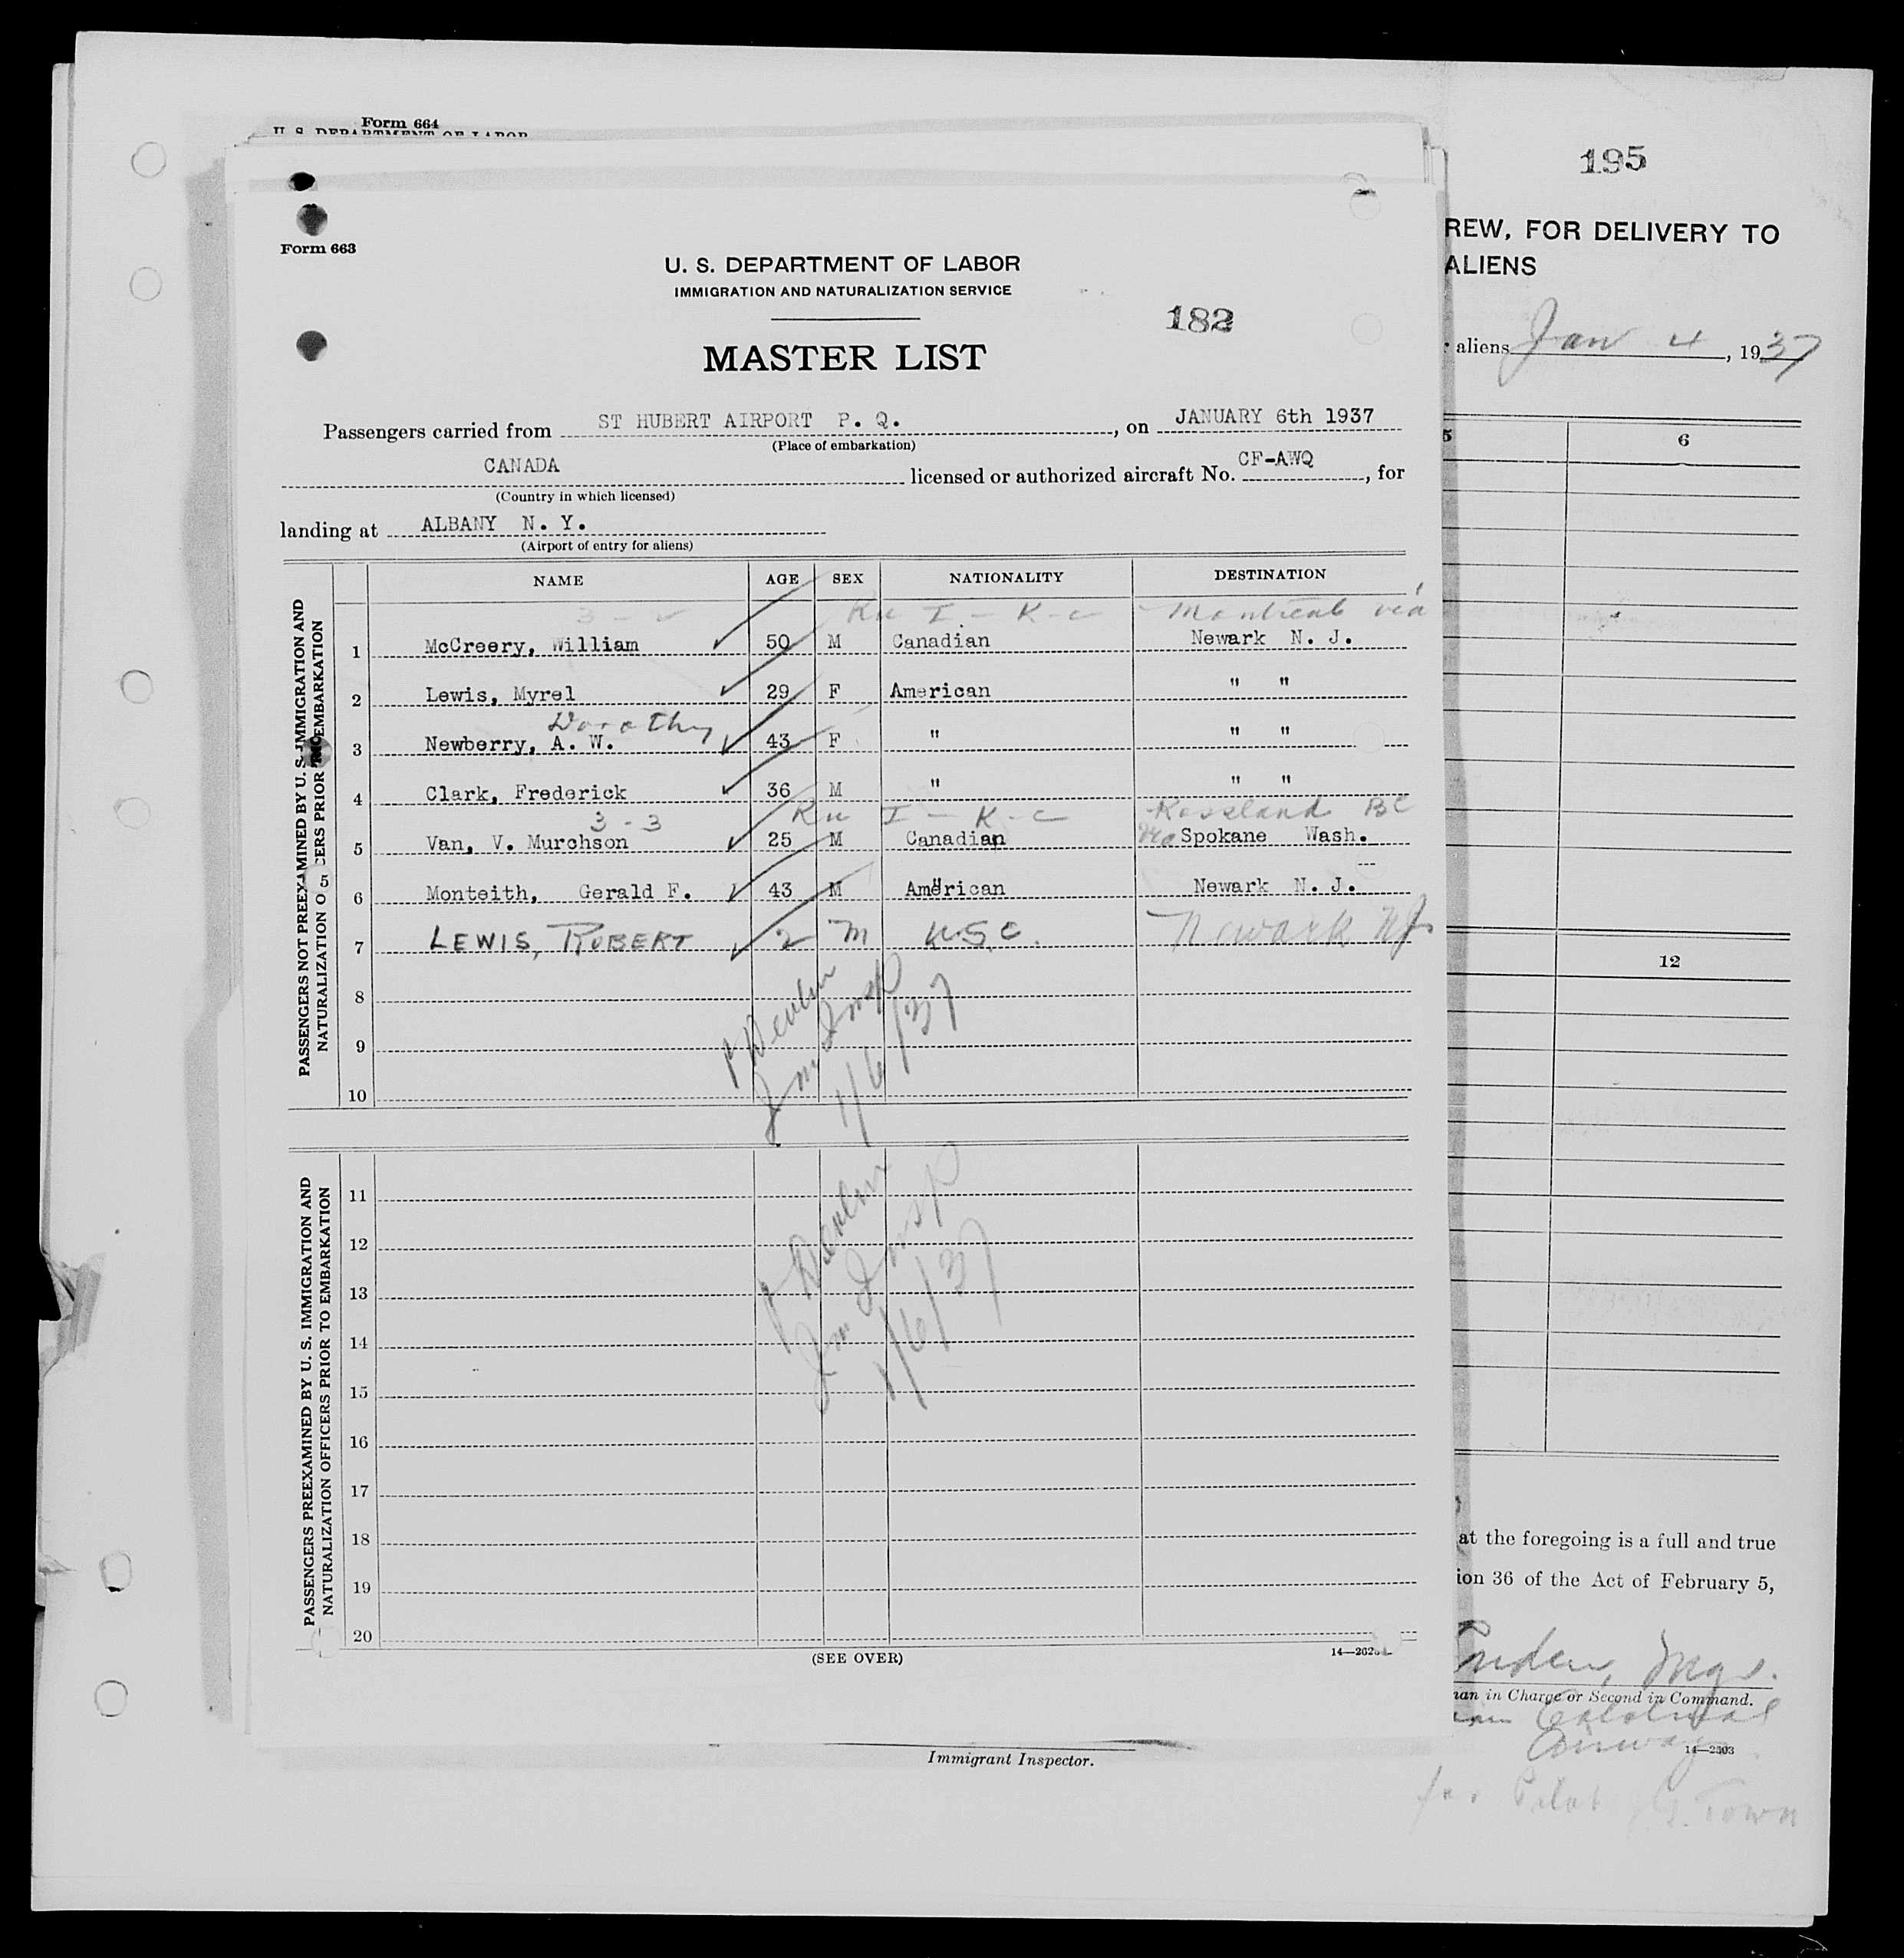 Form 664
U. S. DEPARTMENT OF LABOR
195
REW, FOR DELIVERY TO
ALIENS
aliens Jan 4, 1937
5 6
12
at the foregoing is a full and true
ion 36 of the Act of February 5,
Mgr.
man in Charge or Second in Command.
Colonial
Airways
14—2503
for Pilot Town
Form 663
U. S. DEPARTMENT OF LABOR
IMMIGRATION AND NATURALIZATION SERVICE
182
MASTER LIST
Passengers carried from ST HUBERT AIRPORT P. Q., on JANUARY 6th 1937
(Place of embarkation)
CANADA licensed or authorized aircraft No. CF-AWQ, for
(Country in which licensed)
landing at ALBANY N. Y.
(Airport of entry for aliens)
PASSENGERS NOT PREEXAMINED BY U. S. IMMIGRATION AND
NATURALIZATION OFFICERS PRIOR TO EMBARKATION
5
NAME AGE SEX NATIONALITY DESTINATION
I - K-C Montreal via
1 McCreery, William 50 M Canadian Newark N. J.
2 Lewis, Myrel 29 F American " "
Dorothy
3 Newberry, A. W. 43 F " " "
4 Clark, Frederick 36 M " " "
3-3 I - K-C Rossland BC
5 Van, V. Murchson 25 M Canadian via Spokane Wash.
6 Monteith, Gerald F. 43 M American Newark N. J.
7 LEWIS, ROBERT 2 M U.S.C. Newark NJ
8
9
10
P Devlin
Imm Insp
1/6/37
PASSENGERS PREEXAMINED BY U. S. IMMIGRATION AND
NATURALIZATION OFFICERS PRIOR TO EMBARKATION
11
12
13
14
15
16
17
18
19
20
P Devlin
Imm Insp
1/6/37
(SEE OVER)
Immigrant Inspector.